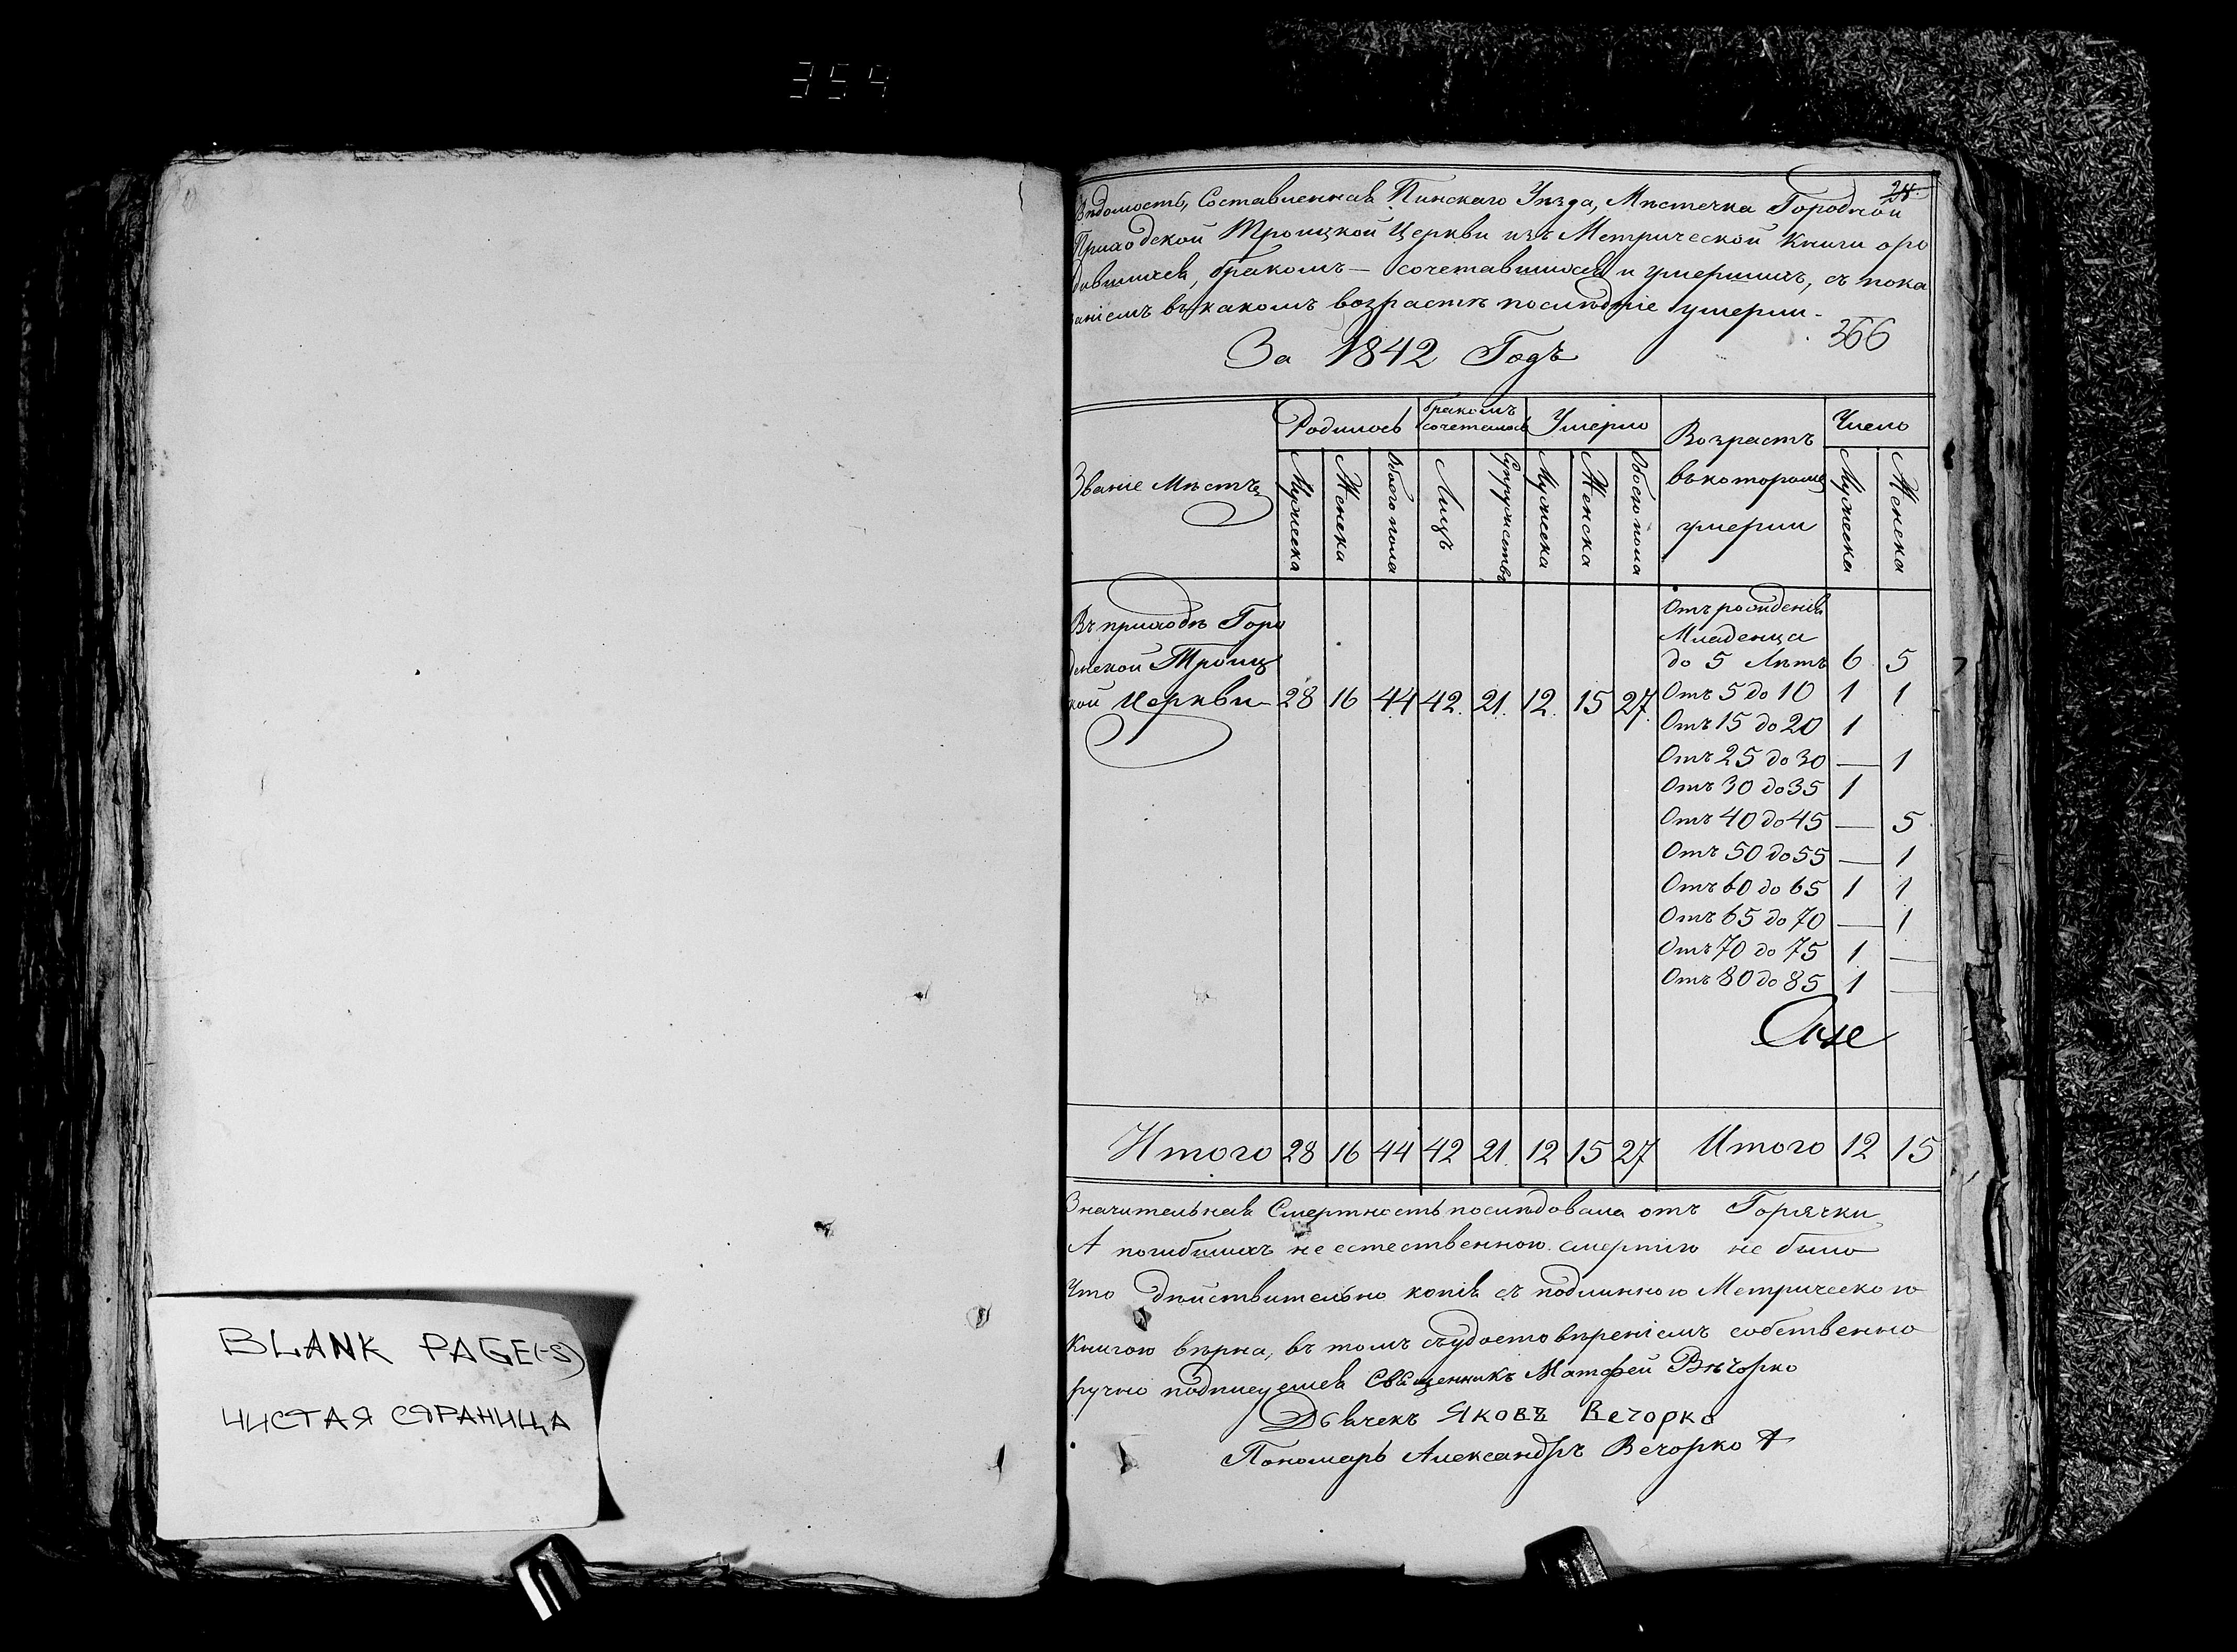 354
BLANK PAGE(-S)
ЧИСТАЯ СТРАНИЦА
Вѣдомость, Составленная Пинскаго Уѣзда, Мѣстечка Городной
Приходской Троицкой Церкви изъ Метрической Книги о ро
дившихся, бракомъ — сочетавшихся и умершихъ, съ пока
заніемъ въ какомъ возрастѣ послѣдніе умерли.
366
За 1842 Годъ
Званіе Мѣстъ
Родилось
бракомъ сочеталось
Умерло
Возрастъ въ которомъ умерли
Число
Мужеска Женска Обоего пола Лицъ Супружествъ Мужеска Женска Обоего пола Мужеска Женска
Въ приходѣ Горо
денской Троиц
кой Церкви 28 16 44 42. 21. 12. 15 27
Отъ рожденія
Младенца
до 5 Лѣтъ 6 5
Отъ 5 до 10 1 1
Отъ 15 до 20 1
Отъ 25 до 30 — 1
Отъ 30 до 35 1
Отъ 40 до 45 — 5
Отъ 50 до 55 — 1
Отъ 60 до 65 1 1
Отъ 65 до 70 — 1
Отъ 70 до 75 1 —
Отъ 80 до 85 1 —
Итого 28 16 44 42 21. 12 15 27 Итого 12 15
Значительная Смертность послѣдовала отъ Горячки
А погибшихъ не естественною смертію не было
Что дѣйствительно копія съ подлинною Метрическою
Книгою вѣрна, въ томъ съ удостовѣреніемъ собственно
ручно подписуемся Священникъ Матфей Вѣчорко
Дьячекъ Яковъ Вечорко
Пономарь Александръ Вечорко